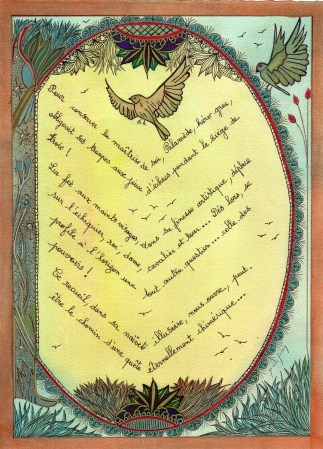 Pour conserver la maîtrise de soi, Palamède, héros grec,
les troupes aux jeux d'échecs pendant le siège de
Troie !
Le fou aux maints visages, dans sa finesse artistique, déplace
sur l'échiquier, roi, dame, cavalier et tour... Dès lors, se
profile à l'horizon une tout autre question... celle des
pouvoirs !
Ce recueil, dans sa naïveté illusoire, nous ouvre, peut-
être le chemin d'une quête éternellement chimérique...